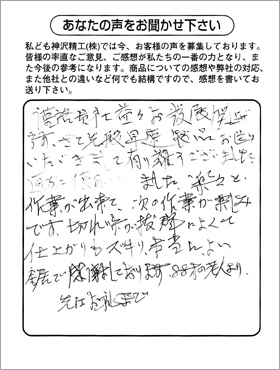 あなたの声をお聞かせ下さい
私ども神沢精工(株)では今、お客様の声を募集しております。
皆様の率直なご意見、ご感想が私たちの一番の力となり、ま
た今後の参考になります。商品についての感想や弊社の対応、
また他社との違いなど何でも結構ですので、感想を書いてお
送り下さい。
貴社益々御発展
さて先般早速製品お送り
いただきまして有難うございました
ました 楽々と
作業が出来て、次の作業が楽しみ
です。切れ味が抜群によくて
仕上がりもスッキリ、本当によい
鋸で感謝しております。88才の老人より。
先はお礼まで